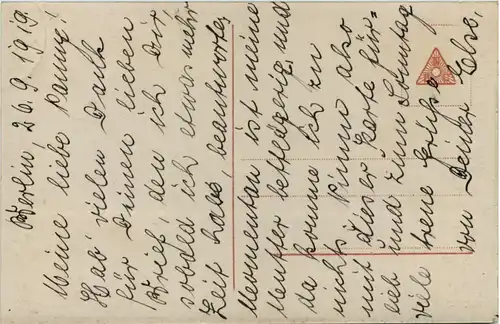 Berlin, 26.9.1919.
Meine liebe Panny!
Hab vielen Dank
für Deinen lieben
Brief, den ich Dir
sobald ich etwas mehr
Zeit habe, beantworte.
Momentan ist meine
Mutter bettlägerig, und
da komme ich zu
nichts. Nimm also
mit dieser Karte für-
lieb und zum Sonntag
viele treue Grüße
von Deiner Else.